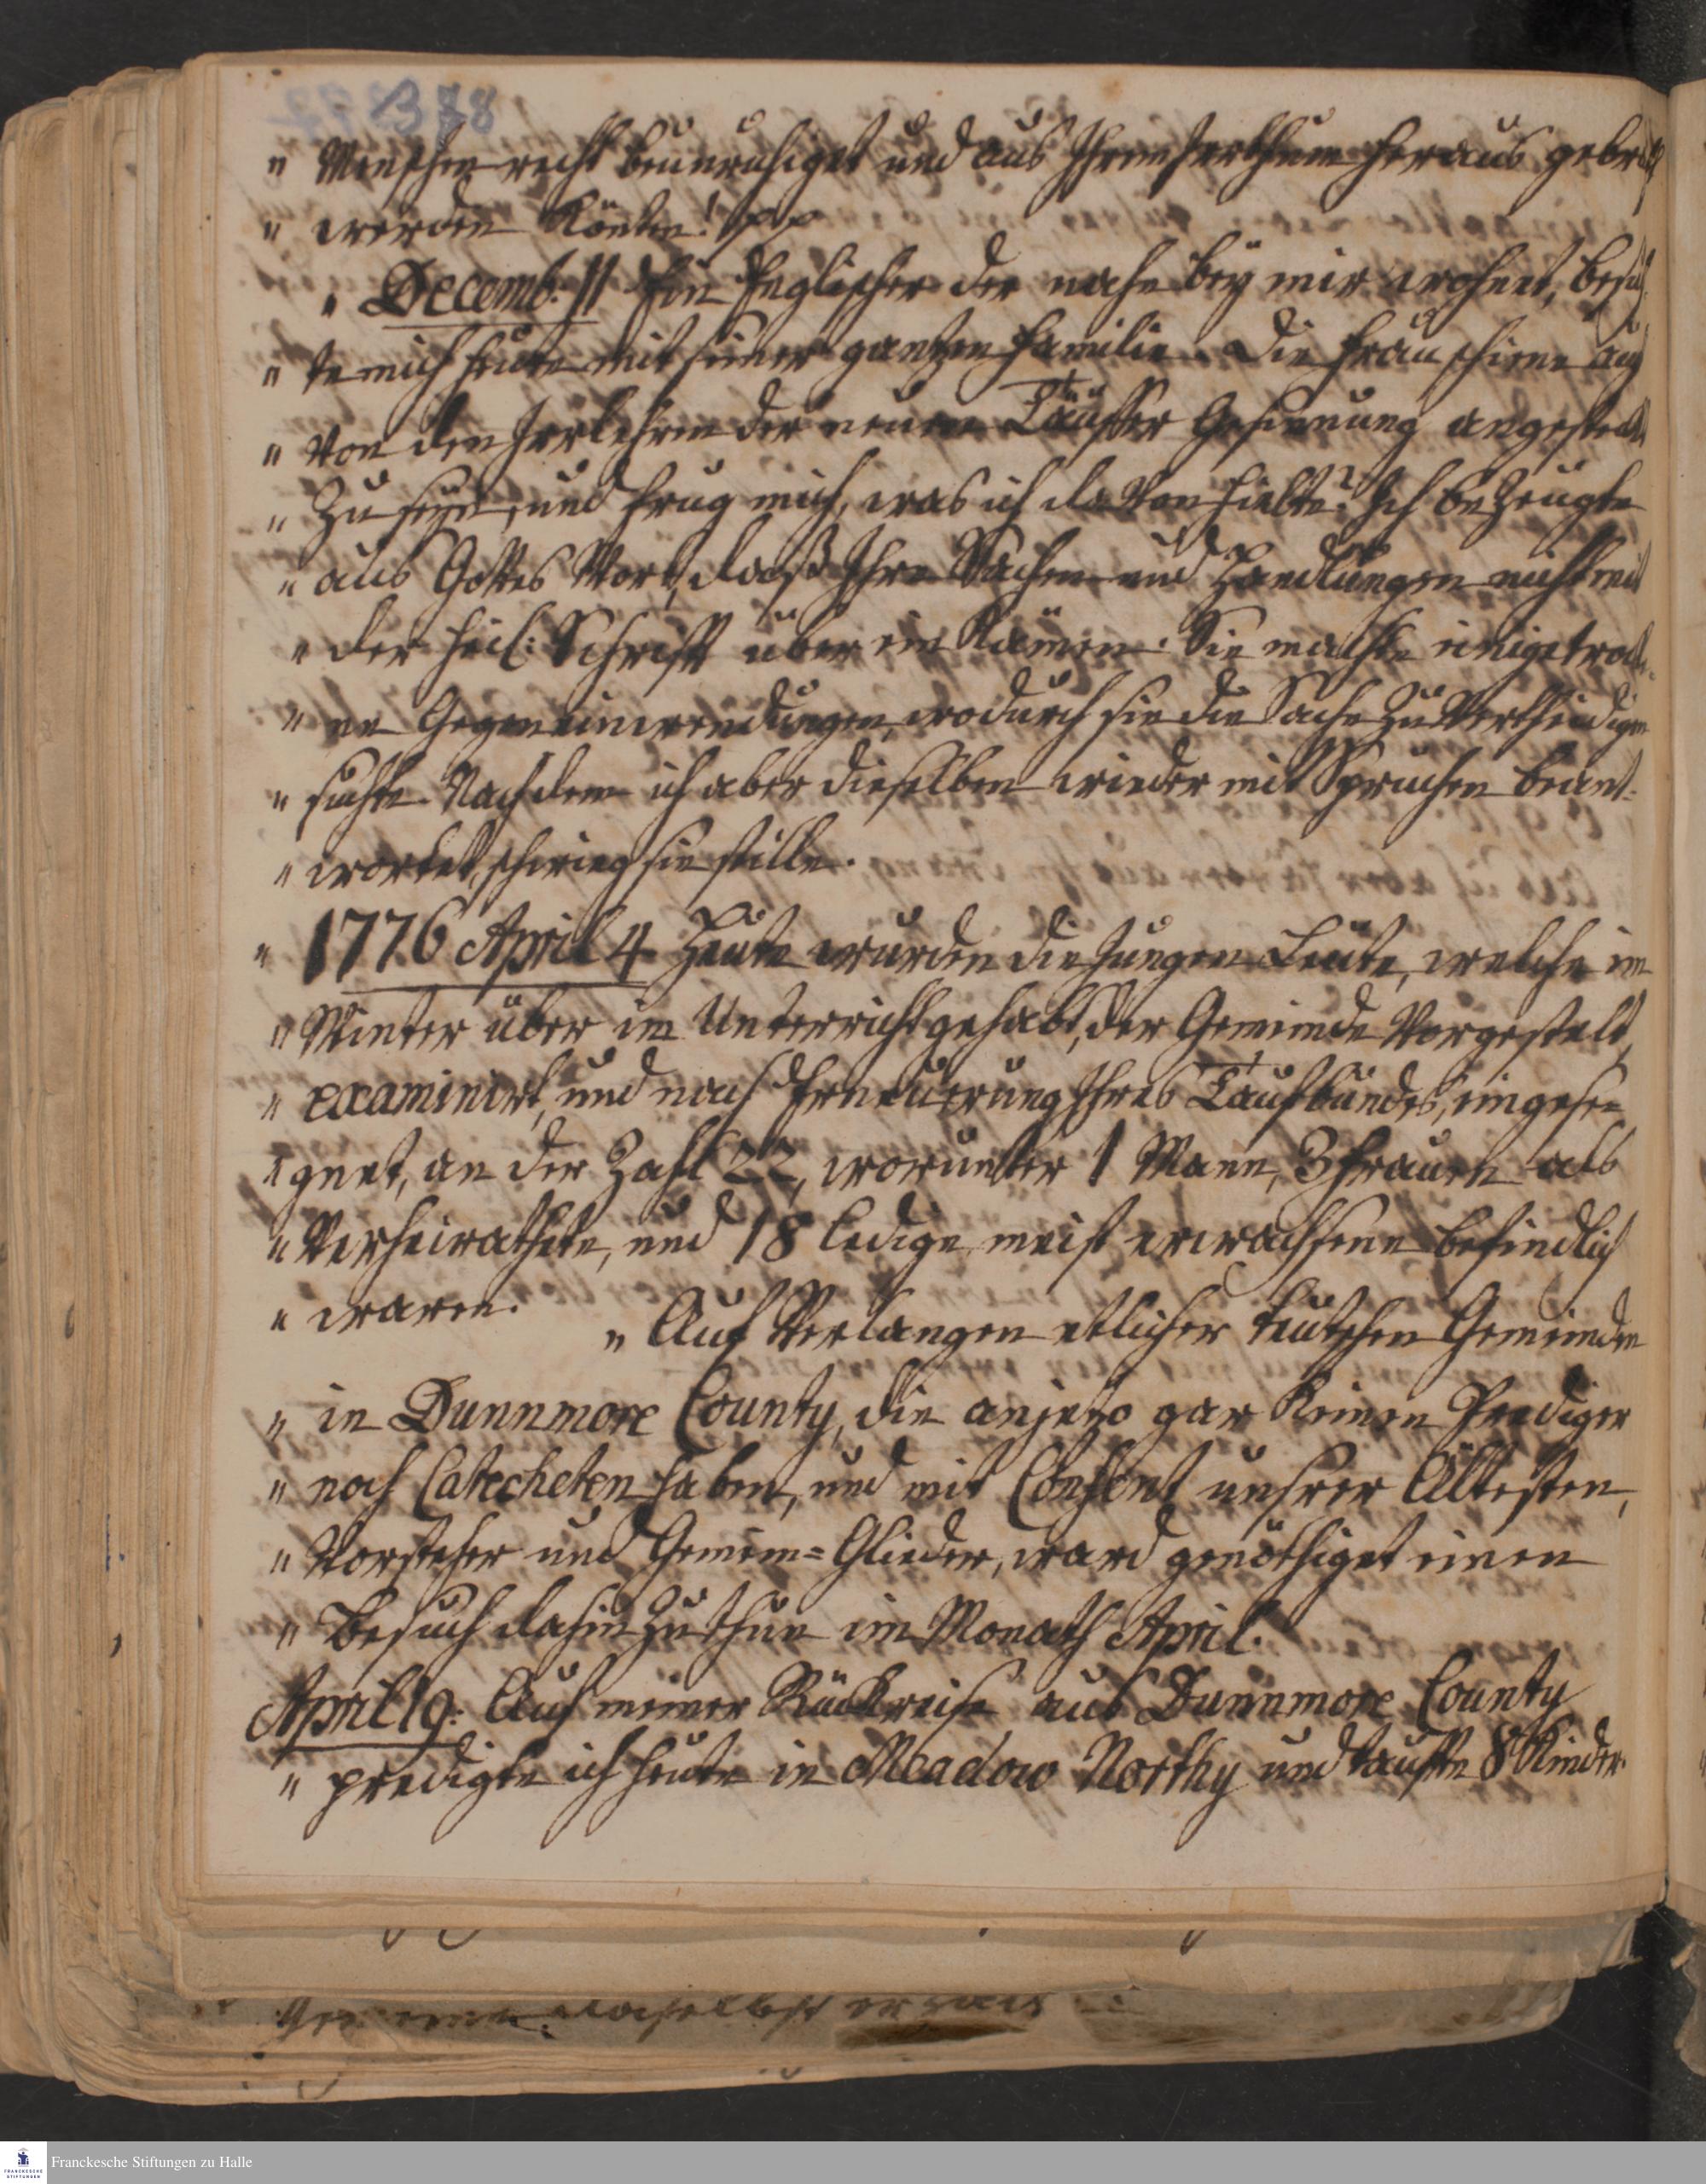 378
" Menschen recht beunruhiget und aus Ihrem Irrthum heraus gebracht
" werden könten! pp
" Decemb. 11 Ein Englischer der nahe bey mir wohnet, besuch
" te mich heute mit seiner gantzen Familie. Die Frau schiene auch
" von den Irrlehren der neuen Täuffer Gesinnung angesteckt
" zu seyn, und frug mich, was ich da von hielte? Ich bezeugte
" aus Gottes Wort, daß Ihre Sachen und Handlungen nicht mit
" der heil: Schrifft über ein kämen. Sie machte einige trock-
" ne Gegeneinwendungen, wodurch sie die Sache zu vertheidigen
" suchte. Nachdem ich aber dieselben wieder mit Sprüchen beant-
" wortet, schwieg sie stille.
" 1776 April 4 Heute wurden die Jungen Leute, welche im
" Winter über im Unterricht gehabt, der Gemeinde vorgestelt,
" examinirt, und nach Erneuerung Ihres Taufbundes, eingese-
" gnet, an der Zahl 22, worunter 1 Mann, 3 Frauen als
" Verheirathete, und 18 ledige meist erwachsene befindlich
" waren.
" Auf Verlangen etlicher teutschen Gemeinden
" in Dunnmore County, die anjezo gar keinen Prediger
" noch Catecheten haben, und mit Consent unsrer Ältesten,
" Vorsteher und Gemein=Glieder, ward genöthiget einen
" Besuch dahin zu thun im Monath April.
April 19: Auf meiner Rückreise aus Dunnmore County
" predigte ich heute in Meadow Northy und taufte 8 Kinder.
Franckesche Stiftungen zu Halle